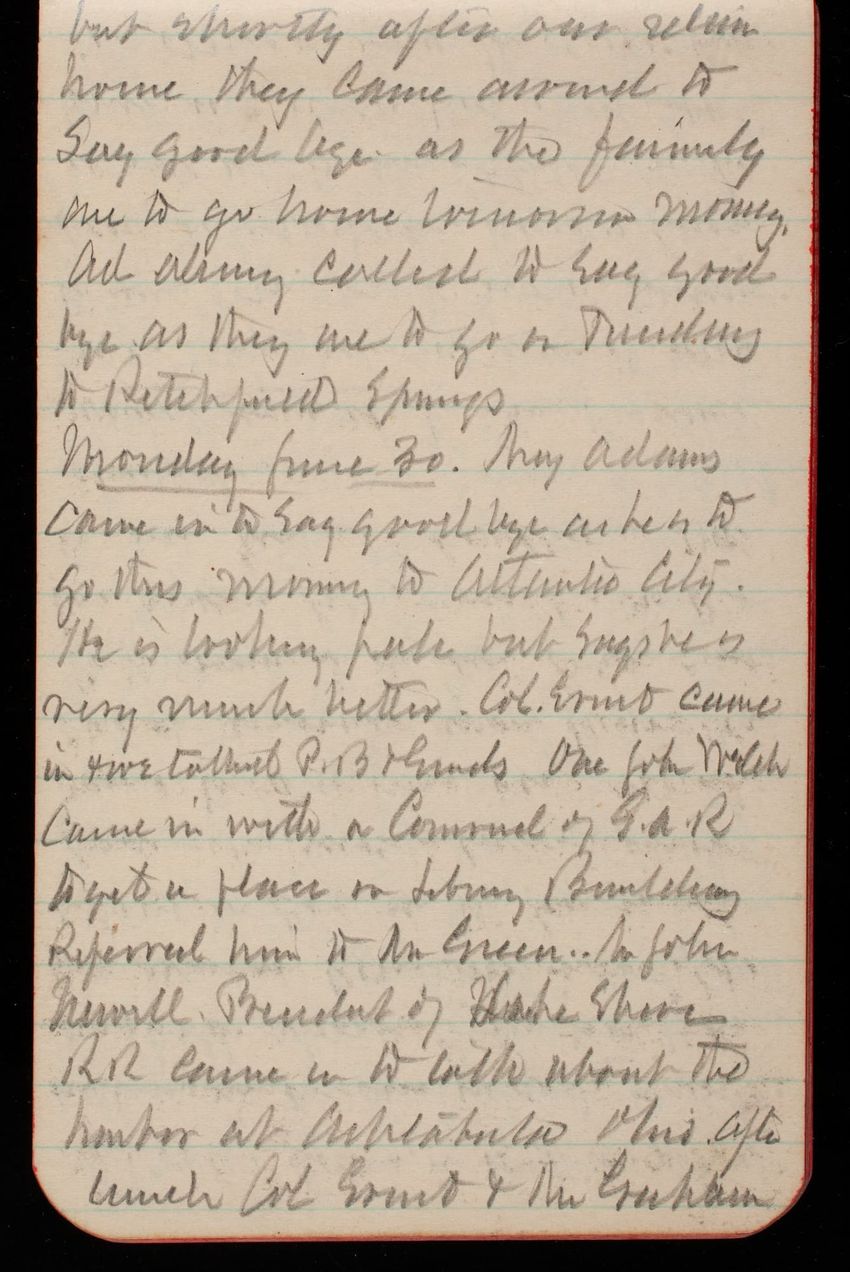 but shortly after our return
home they came around to
say good bye as the family
are to go home tomorrow morning.
called to say good
bye as they are to go on Tuesday
to Richfield Springs
Monday June 30. Adams
came in to say good bye as he is to
go this morning to Atlantic City.
He is looking pale but says he is
very much better. Col. Ernst came
in & we talked P. B One John Welch
came in with a Comrad of G.A.R
to get a place on Library Building
Referred him to Mr Green.. Mr John
Newell. President of Lake Shore
RR came in to talk about the
harbor at Ashtabula Ohio. after
lunch Col Ernst & Mr Graham